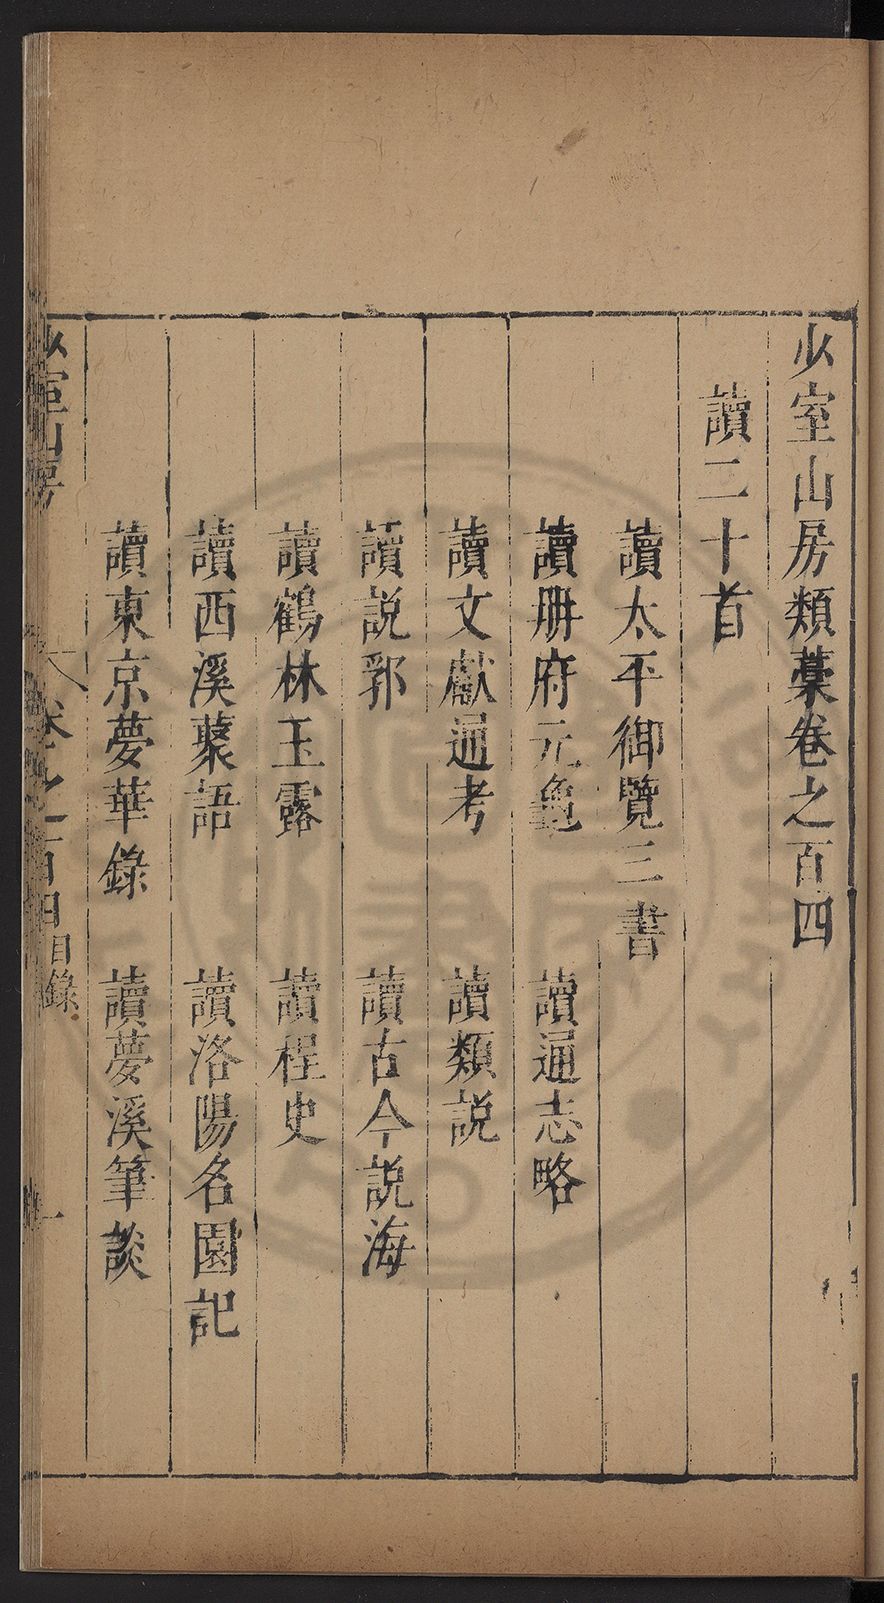 少室山房類藁卷之百四
讀二十首
讀太平御覽三書
讀册府元龜 讀通志略
讀文獻通考 讀類説
讀説郛 讀古今説海
讀鶴林玉露 讀桯史
讀西溪藂語 讀洛陽名園記
讀東京夢華錄 讀夢溪筆談
少室山房 卷之百四目錄 一